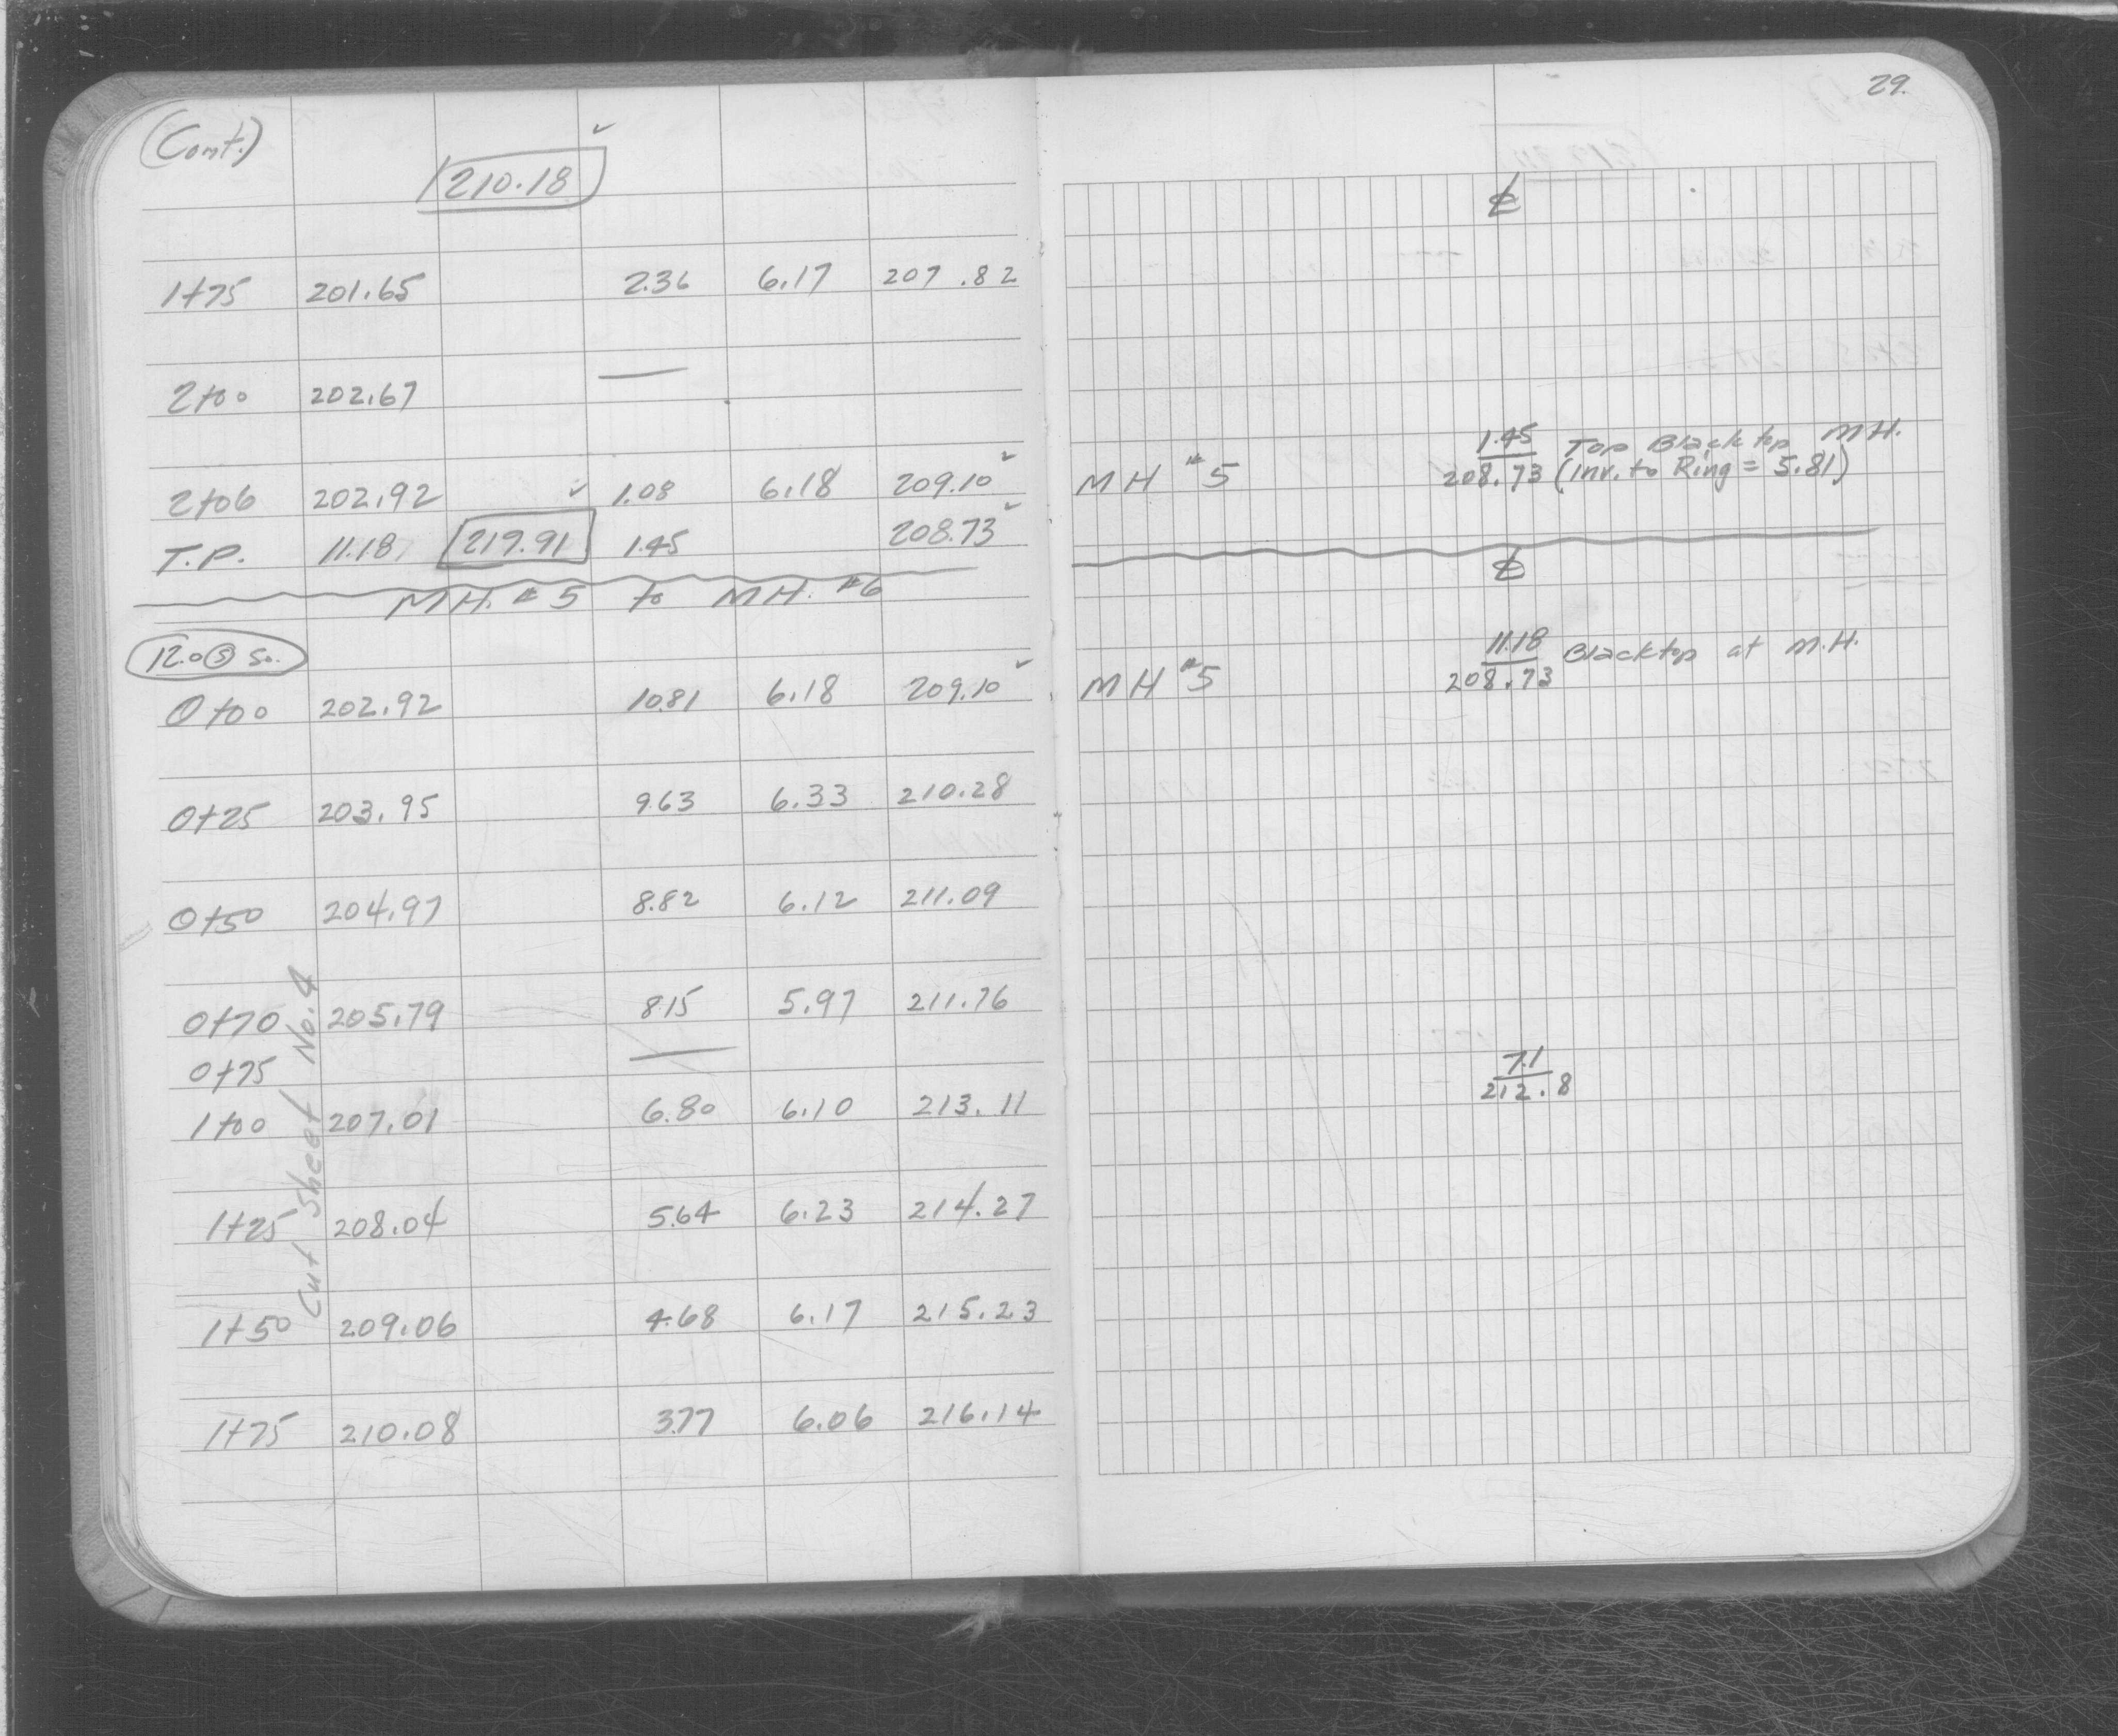 29.
(Cont.)
210.18 ✓
℄
1+75 201.65 2.36 6.17 207.82
2+00 202.67 —
1.45 Top Blacktop MH.
2+06 202.92 ✓ 1.08 6.18 209.10 ✓ MH #5 208.73 (Inv. to Ring = 5.81)
T.P. 11.18 219.91 1.45 208.73 ✓
℄
MH. #5 to MH. #6
12.0⑤ So.
11.18 Blacktop at M.H.
0+00 202.92 10.81 6.18 209.10 ✓ MH #5 208.73
0+25 203.95 9.63 6.33 210.28
0+50 204.97 8.82 6.12 211.09
0+70 205.79 8.15 5.97 211.76
0+75 — 7.1
212.8
1+00 207.01 6.80 6.10 213.11
1+25 208.04 5.64 6.23 214.27
1+50 209.06 4.68 6.17 215.23
1+75 210.08 3.77 6.06 216.14
Cut Sheet No. 4